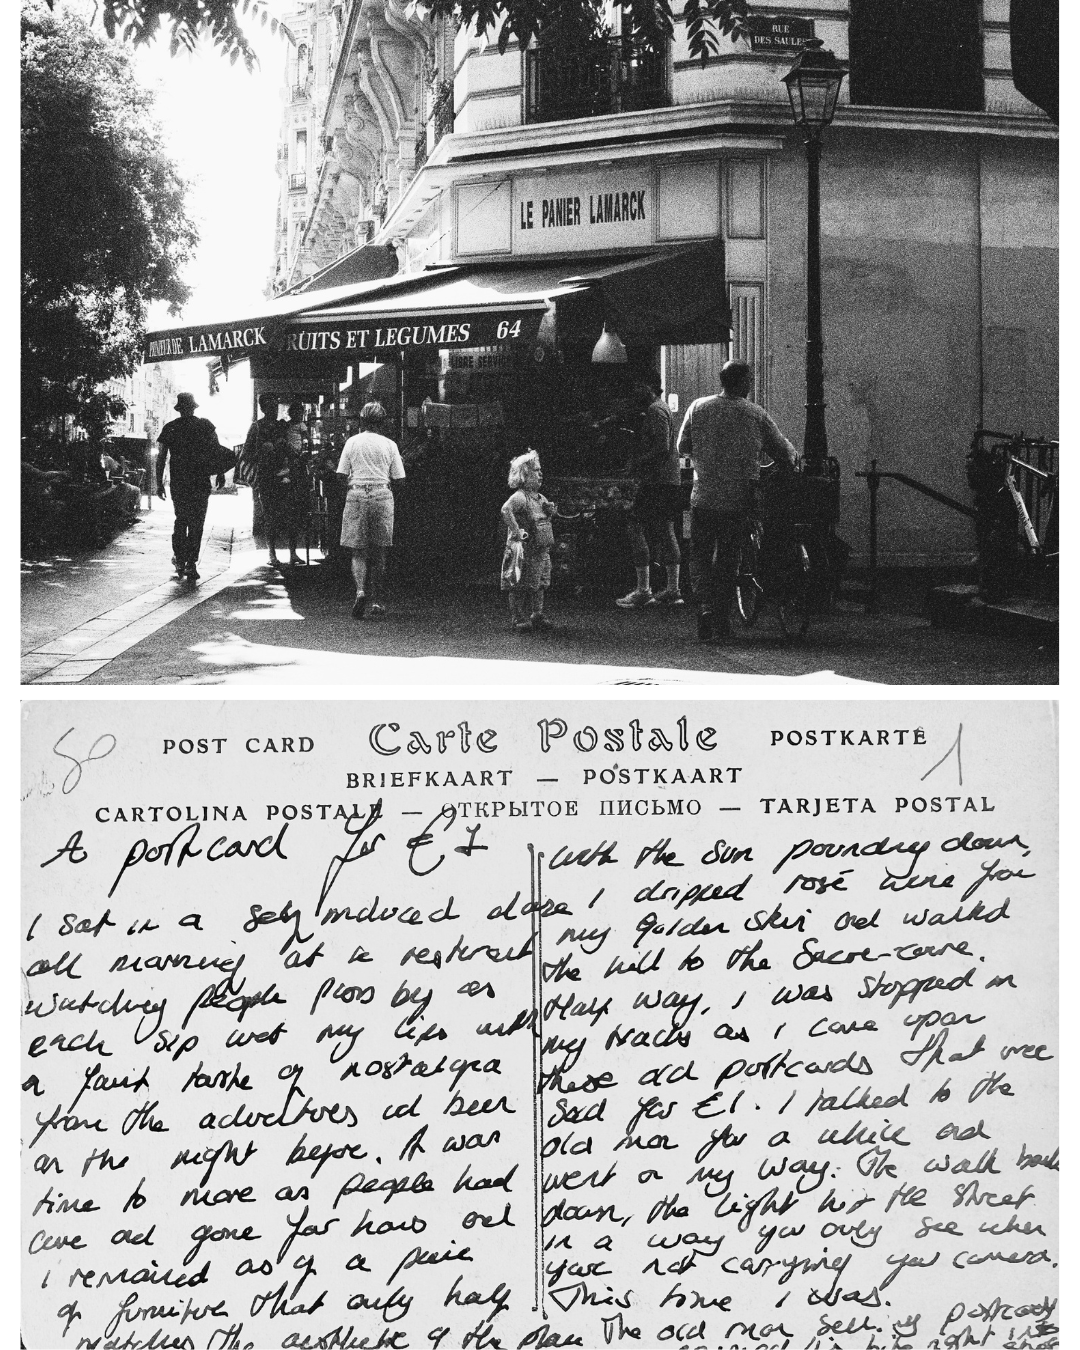 RUE
DES SAULES
LE PANIER LAMARCK
DE LAMARCK
RUITS ET LEGUMES 64
LIBRE SERVICE
POST CARD Carte Postale POSTKARTE
BRIEFKAART — POSTKAART
CARTOLINA POSTALE — ОТКРЫТОЕ ПИСЬМО — TARJETA POSTAL
A postcard for £1
I sat in a self induced daze
all morning at a restaurant
watching people pass by as
each sip wet my lips with
a faint taste of nostalgia
from the adventures id been
on the night before. It was
time to move as people had
come and gone for hours and
i remained as if a piece
of furniture that only half
matches the aesthetic of the place
with the sun pounding down,
I dripped rosé wine from
my golden skin and walked
the hill to the Sacre-coure.
Half way, i was stopped in
my tracks as i came upon
these old postcards that were
said for £1. I talked to the
old man for a while and
went on my way. The walk back
down, the light hit the street
in a way you only see when
your not carrying your camera.
This time i was.
The old man selling postcards
right